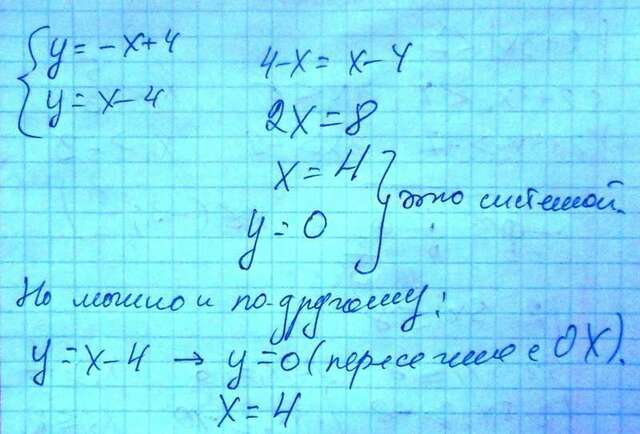 { y = -x+4
y = x-4
4-x = x-4
2x = 8
x = 4
y = 0 } это системой.
Но можно и по-другому:
y = x-4 → y = 0 (пересечение с OX).
x = 4